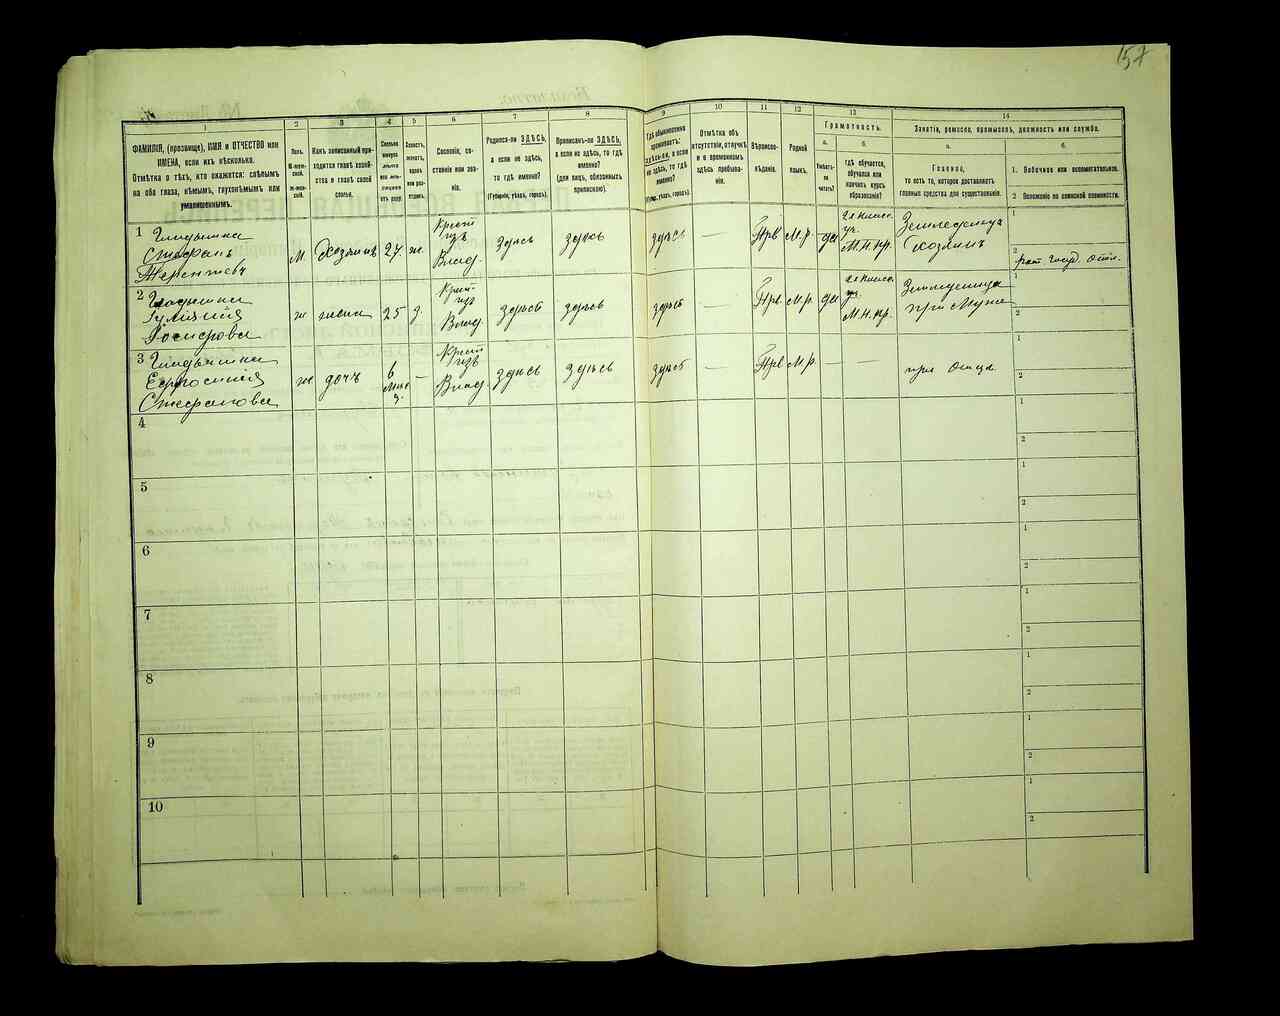 157
1
ФАМИЛІЯ, (прозвище), ИМЯ и ОТЧЕСТВО или
ИМЕНА, если ихъ нѣсколько.
Отмѣтка о тѣхъ, кто окажется: слѣпымъ
на оба глаза, нѣмымъ, глухонѣмымъ или
умалишеннымъ.
2
Полъ.
М-муж-
ской.
Ж-жен-
скій.
3
Какъ записанный при-
ходится главѣ хозяй-
ства и главѣ своей
семьи.
4
Сколько
минуло
лѣтъ
или мѣ-
сяцевъ
отъ роду.
5
Холостъ,
женатъ,
вдовъ
или раз-
веденъ.
6
Сословіе, со-
стояніе или зва-
ніе.
7
Родился-ли ЗДѢСЬ,
а если не здѣсь,
то гдѣ именно?
(Губернія, уѣздъ, городъ).
8
Приписанъ-ли ЗДѢСЬ,
а если не здѣсь, то гдѣ
именно?
(для лицъ, обязанныхъ
припискою).
9
Гдѣ обыкновенно
проживаетъ:
ЗДѢСЬ-ли, а если
не здѣсь, то гдѣ
именно?
(Губ., уѣздъ, городъ).
10
Отмѣтка объ
отсутствіи, отлучкѣ
и о временномъ
здѣсь пребыва-
ніи.
11
Вѣроиспо-
вѣданіе.
12
Родной
языкъ.
13
Грамотность.
а.
Умѣетъ-
ли
читать?
б.
гдѣ обучается,
обучался или
кончилъ курсъ
образованія?
14
Занятіе, ремесло, промыселъ, должность или служба.
а.
Главное,
то есть то, которое доставляетъ
главныя средства для существованія.
б.
1. Побочное или вспомогательное.
2 Положеніе по воинской повинности.
1 Гладышка
Стефанъ
Терентіевъ
М. Хозяинъ 27. ж. Крест
изъ
Влад. Здѣсь здѣсь здѣсь — Прв М.р. да 2х класс.
уч.
М.Н.пр. Земледелица
хозяинъ
1
2
2 Гладышка
ж жена 25 з. Крест
изъ
Влад. здѣсь здѣсь здѣсь — Прв. М.р да 2х класс.
М.Н.пр. Земледелица
при Мужѣ
1
2
3 Гладышка
Ефросинія
Стефанова
ж дочь 6
— Крест
изъ
Влад. здѣсь здѣсь здѣсь — Прв М.р. — — при Отцѣ
1
2
4
1
2
5
1
2
6
1
2
7
1
2
8
1
2
9
1
2
10
1
2